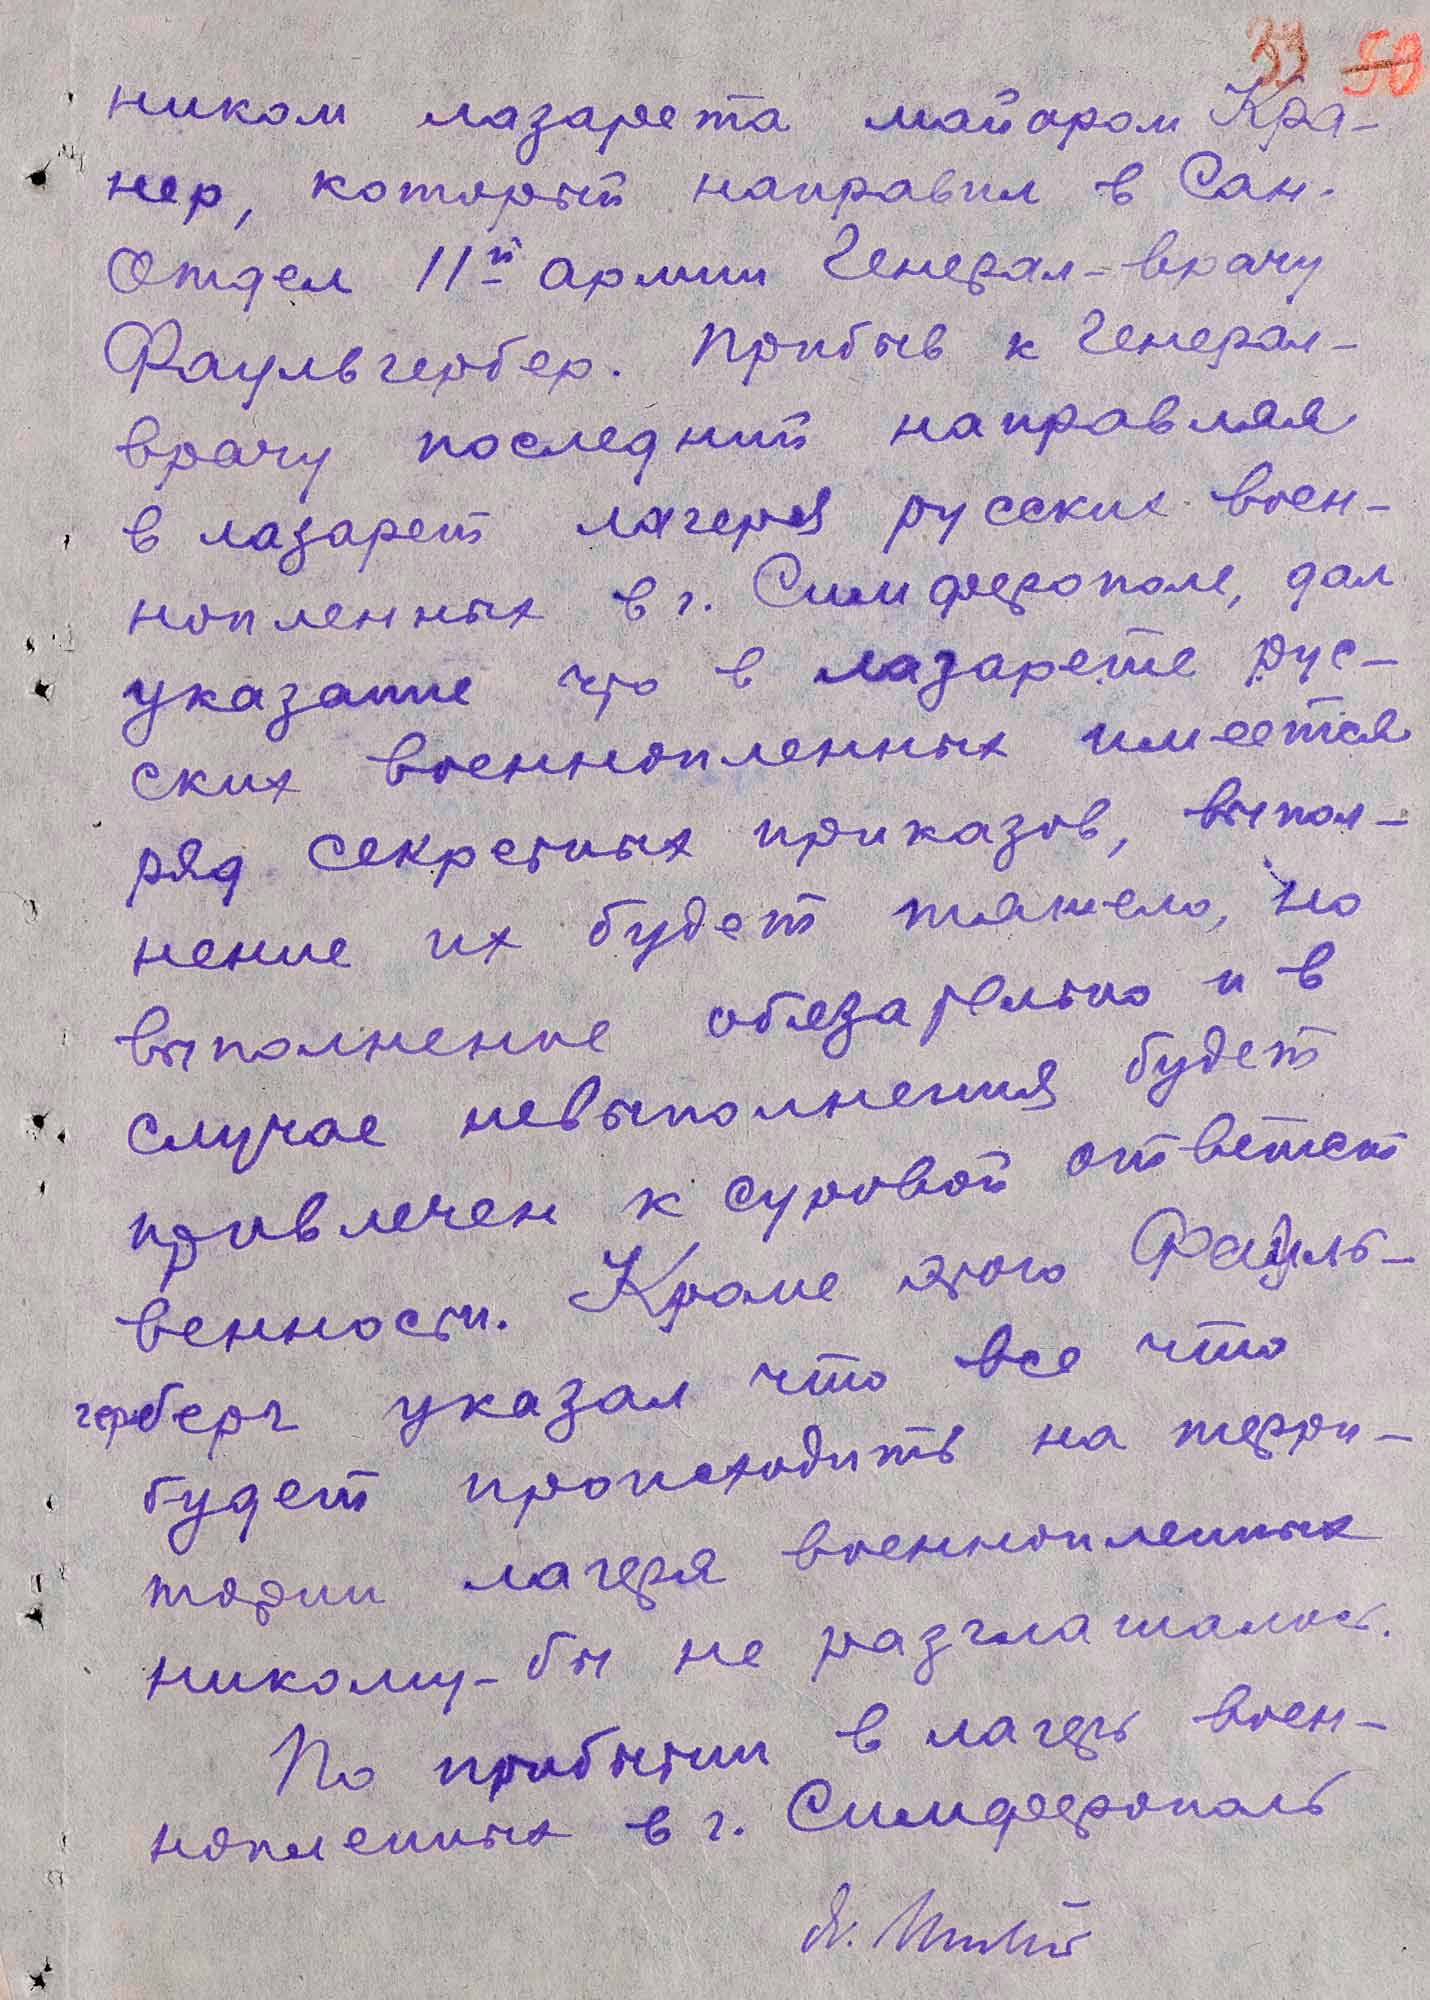 33 50
ником лазарета майором Кра-
нер, который направил в Сан.
Отдел 11й армии Генерал-врачу
Фаульвгербер. Прибыв к Генерал-
врачу последний направляя
в лазарет лагеря русских воен-
нопленных в г. Симферополе, дал
указание что в лазарете рус-
ских военнопленных имеется
ряд секретных приказов, выпол-
нение их будет тяжело, но
выполнение обязательно и в
случае невыполнения будет
привлечен к суровой ответст
венности. Кроме этого Фауль-
герберг указал что все что
будет происходить на терри-
тории лагеря военнопленных
никому-бы не разглашалось.
По прибытии в лагерь воен-
нопленных в г. Симферополь